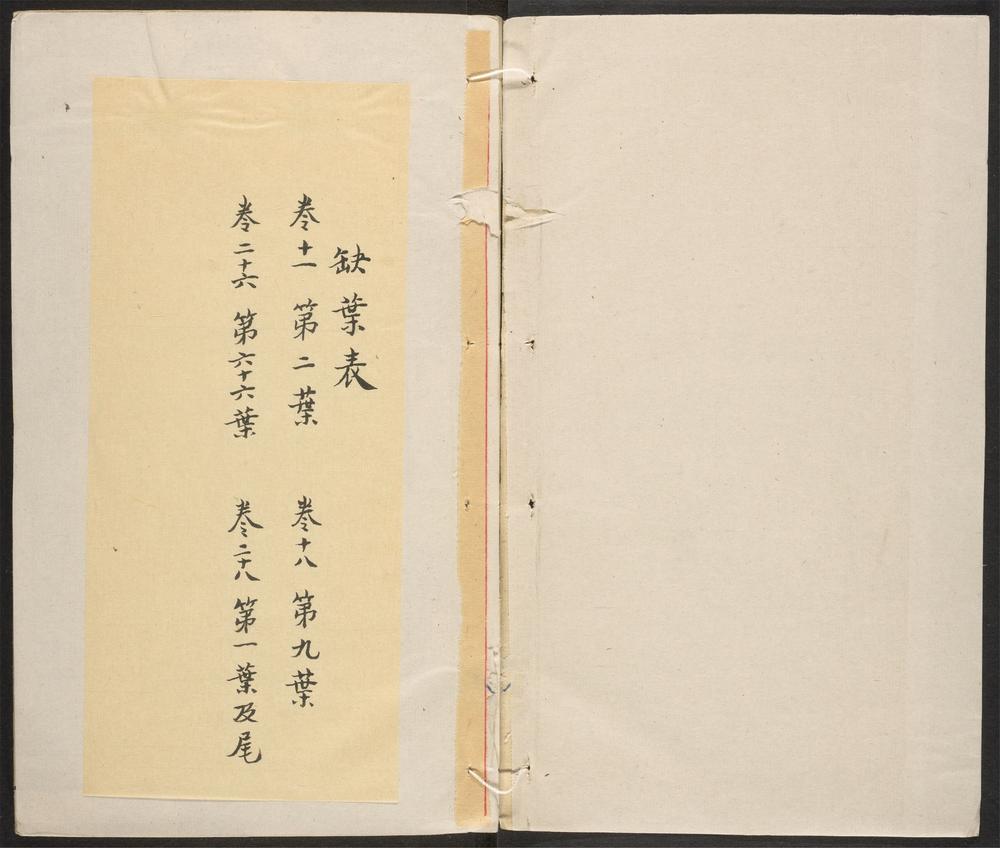 缺葉表
卷十一 第二葉 卷十八 第九葉
卷二十六 第六十六葉 卷二十八 第一葉及尾